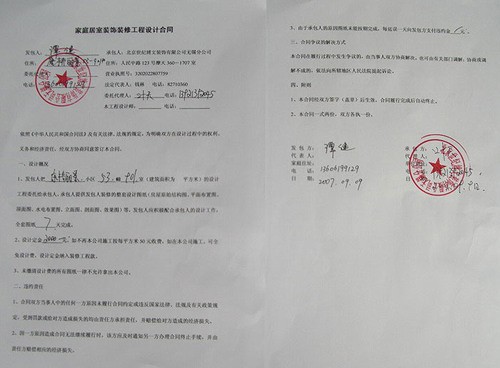 家庭居室装饰装修工程设计合同
发包人：谭健 承包人：北京世纪禧文装饰有限公司无锡分公司
住所： 住所：人民中路123号摩天360—1707室
营业执照号：3202022807759
电话： 法定代表人：钱群 电话：82710360
委托代理人： 电话：
本工程设计师： 电话：
依照《中华人民共和国合同法》及有关法律、法规的规定，为明确双方在设计过程中的权利、
义务和经济责任，经双方协商同意签订本合同。
一．设计概况
1、发包人把 小区 53 幢 901 室（建筑面积为 平方米）的设计
工程委托给承包人，承包人提供发包人装修的整套设计图纸（包括原始结构图、平面布置图、
顶面图、水电布置图、立面图、剖面图、效果图）等，发包人应积极配合承包人的设计工作，
全套图纸 7 天完成。
2、设计定金 2000元 如不再本公司施工按每平方米50元收费，如由本公司施工，可全
免设计费，设计定金纳入装修工程款。
3、未缴清设计费的所有图纸一律不允许拿出本公司。
二、违约责任
1、合同双方当事人中的任何一方原因未履行合同约定或违反国家法律、法规及有关政策规
定，受到罚款或给对方造成损失的均由责任方承担责任，并赔偿给对方造成的经济损失。
2、因一方原因造成合同无法继续履行时，该方应及时通知另一方办理合同终止手续，并由
责任方赔偿相应的经济损失。
3、由于承包人的原因图纸未能按期完成，每延误一天向发包方支付违约金 元。
三、合同争议的解决方式
本合同在履行过程中发生争议的，由当事人双方协商解决，也可由有关部门调解，协商或调
解不成的，依法向所辖地区人民法院提起诉讼。
四、附则
1、本合同经双方签字（盖章）后生效，合同履行完成后自动终止。
2、本合同一式两份，双方各执一份。
发包方：谭健 承包方：
代表人： 代表人：
家庭住址：
电话：13606199129 电话：
日期：2007.09.09 日期：